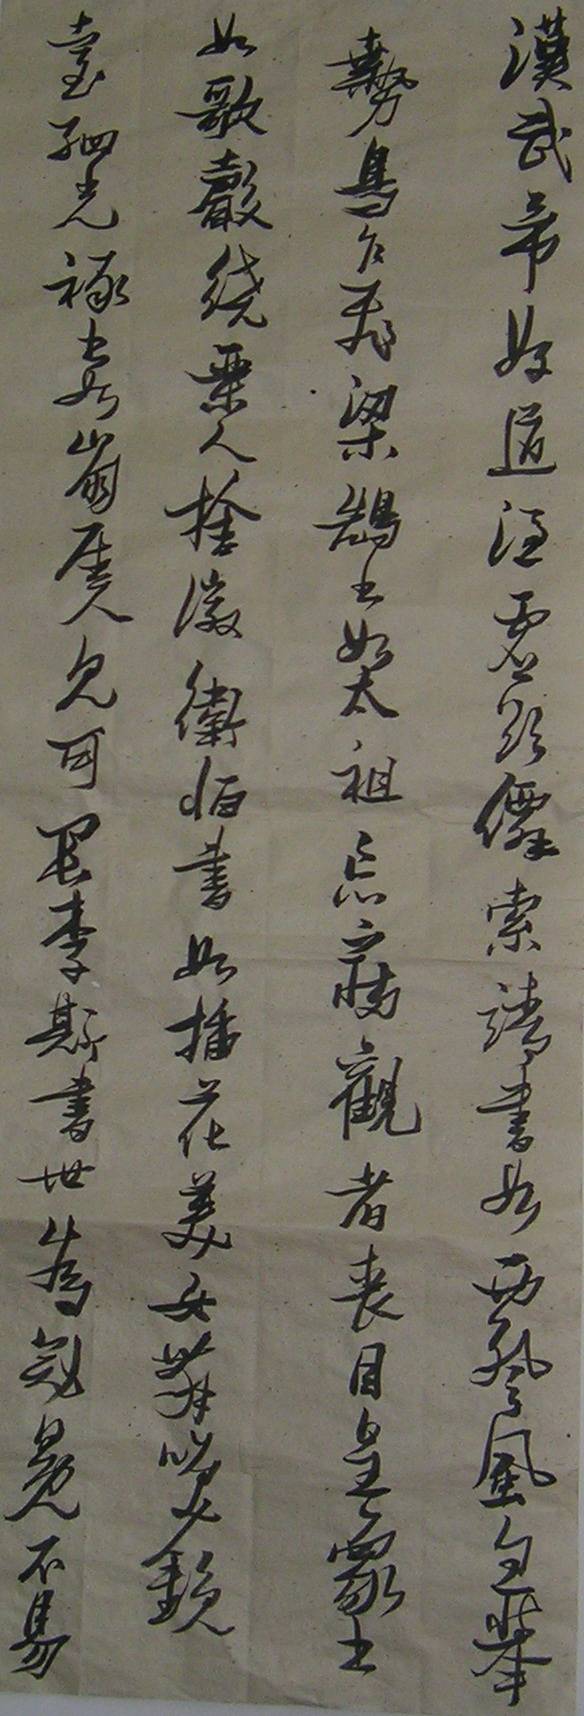 漢武帝好道憑虛欲僊索靖書如飄風忽舉
鷙鳥乍飛梁鵠書如太祖忘寢觀者喪目皇象書
如歌聲繞人捨徽衛恒書如插花美女舞笑鏡
臺光祿書如崩崖人見可畏李斯書世為冠冕不易